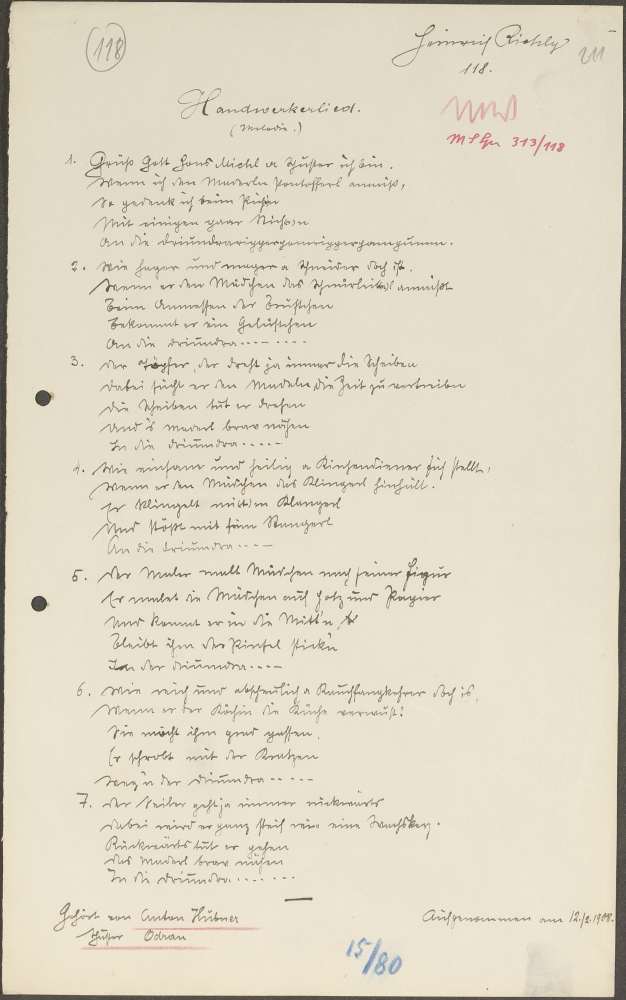 118
Heinrich Rietsch
118.
Handwerkerlied.
(Melodie.)
313/118
1. Grüß Gott Hans Michl a Schuster ich bin.
Wenn ich den Maderln Pantofferl anmiß,
So gedenk ich beim
Mit einigen paar Stichen
An die
2. Wie hager und mager a Schneider doch ist.
Wenn er den Mädchen das anmißt
Beim Anmessen der Brüstchen
Bekommt er ein Gelüstchen
An die driundra--------
3. Der Töpfer, der dreht ja immer die Scheiben
Dabei sucht er den Madeln die Zeit zu vertreiben
Die Scheiben tut er drehen
Und 's Maderl brav nähen
In die driundra-----
4. Wie einsam und heilig a Kirchendiener sich stellt,
Wenn er den Mädchen das Klingerl hinhält.
Er klingelt mit dem Klangerl
Und stößt mit sein Stangerl
An die driundra----
5. Der Maler malt Mädchen nach seiner Figur
Er malet die Mädchen auf Holz und Papier
Und kommt er in die Mitt'n
Bleibt ihm der Pinsel stick'n
In der driundra----
6. Wie und abscheulich a Rauchfangkehrer doch is,
Wenn er der Köchin die Küche verwüst!
Sie möcht ihm grad passen.
Er schrobt mit der Kratzen
Weg'n der driundra-----
7. Der Seiler geht ja immer rückwärts
Dabei wird er ganz steif wie eine Wachskerz.
Rückwärts tut er gehen
Das Maderl brav nähen
In die driundra.......
Gehört von Anton Hübner
Odrau
Aufgenommen am 12./2. 1908.
15/80